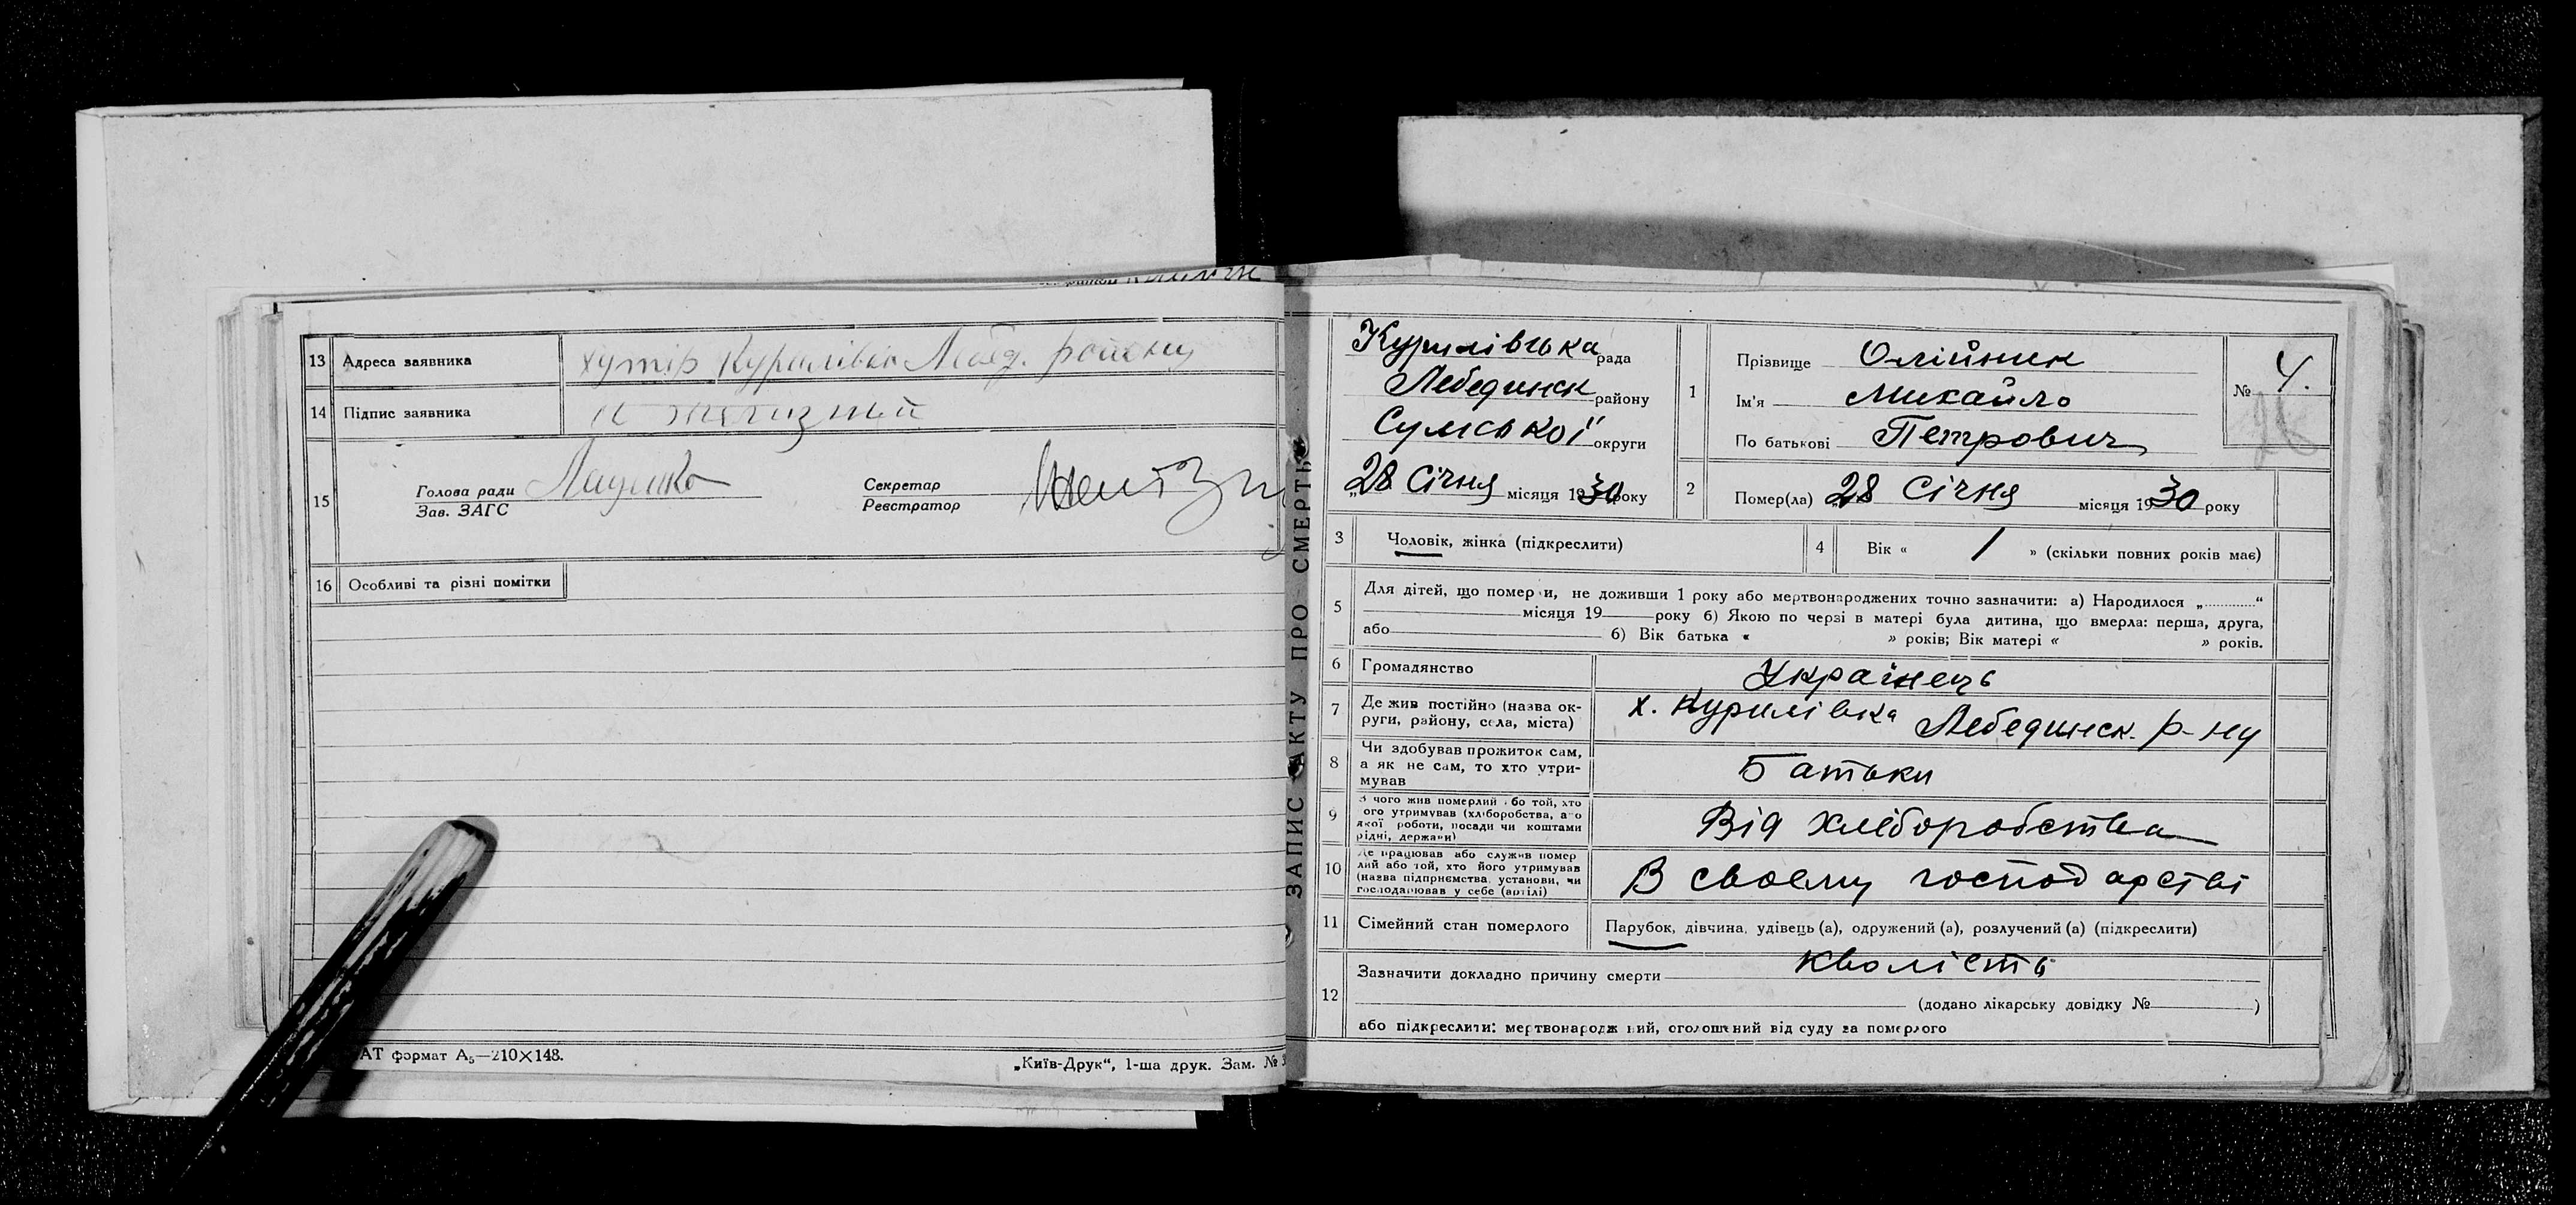 13 Адреса заявника хутір Курилівка Лебед. району
14 Підпис заявника
15 Голова ради
Зав. ЗАГС
Секретар
Реєстратор
16 Особливі та різні помітки
АТ формат А5—210×148.
„Київ-Друк“, 1-ша друк. Зам. №
ЗАПИС АКТУ ПРО СМЕРТЬ
Курилівська рада
Лебединск району
Сумської округи
„28 Січня місяця 1930 року
1 Прізвище Олійник
Ім'я Михайло
По батькові Петрович
№ 4.
2 Помер(ла) 28 Січня місяця 1930 року
3 Чоловік, жінка (підкреслити)
4 Вік « 1 » (скільки повних років має)
5 Для дітей, що померли, не доживши 1 року або мертвонароджених точно зазначити: а) Народилося „ “
місяця 19 року б) Якою по черзі в матері була дитина, що вмерла: перша, друга,
або б) Вік батька « » років; Вік матері « » років.
6 Громадянство Українець
7 Де жив постійно (назва ок-
руги, району, села, міста) х. Курилівка Лебединск. р-ну
8 Чи здобував прожиток сам,
а як не сам, то хто утри-
мував Батьки
9 З чого жив померлий або той, хто
ого утримував (хліборобства, або
якої роботи, посади чи коштами
рідні, держави) Від хліборобства
10 Де працював або служив помер
лий або той, хто його утримував
(назва підприємства, установи, чи
господарював у себе (артілі) В своему господарстві
11 Сімейний стан померлого Парубок, дівчина, удівець (а), одружений (а), розлучений (а) (підкреслити)
12 Зазначити докладно причину смерти кволість
(додано лікарську довідку № )
або підкреслити: мертвонароджений, оголошений від суду за померлого